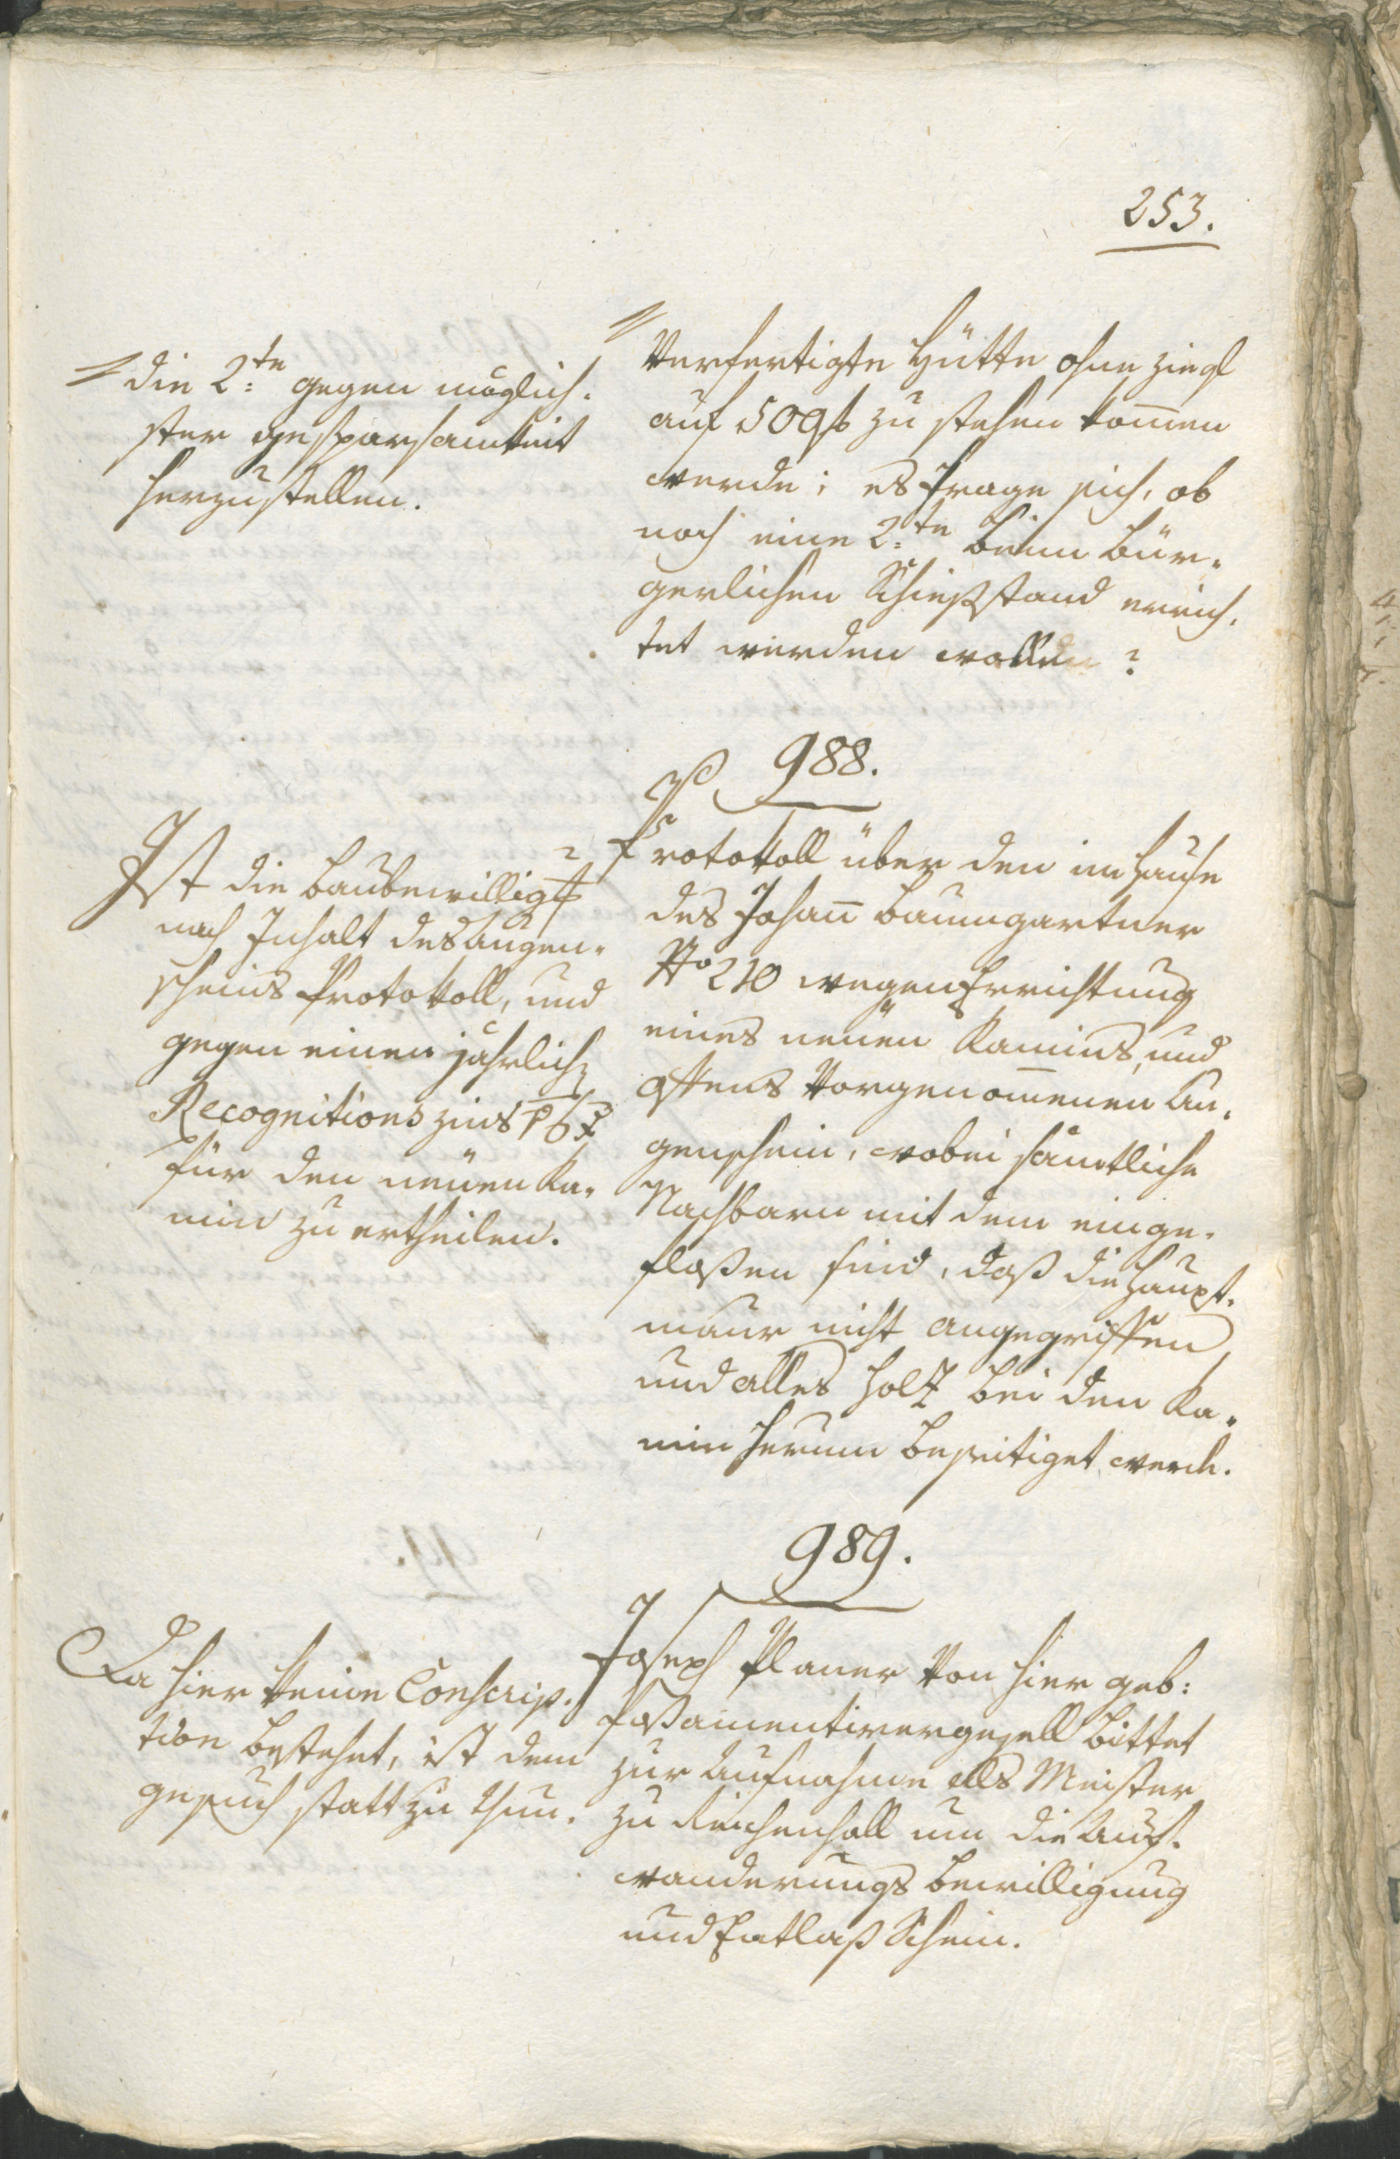 253.
die 2:te gegen möglich-
ster gesparsamkeit
herzustellen.
Verfertigte Hütte ohne ziegl
auf 50 fl zu stehen kom̅en
werde; es frage sich, ob
noch eine 2:te beim bür-
gerlichen Schießstand errich-
tet werden wollen?
988.
Ist die baubewillig
nach Inhalt des Augen-
scheins Protokoll, und
gegen einen jährlich
Recognitions zins pr 6 x
für den neüen Ka-
min zu ertheilen.
Protokoll über den im Hause
des Johan̅ baumgartner
No 210 wegen Errichtung
eines neüen Kamins, und
Ofens Vorgenom̅enen Au-
genschein, wobei sämtliche
Nachbarn mit dem einge-
floßen sind, daß die Haupt-
mauer nicht angegriffen
und alles Holz bei den Ka-
min herum beseitiget werde.
989.
Da hier keine Conscrip-
tion bestehet, ist dem
gesuch statt zu thun.
Joseph Planer von hier geb:
Poßamentirergesell bittet
zur Aufnahme als Meister
zu Reichenhall um die Aus-
wanderungs bewilligung
und Entlaß Schein.